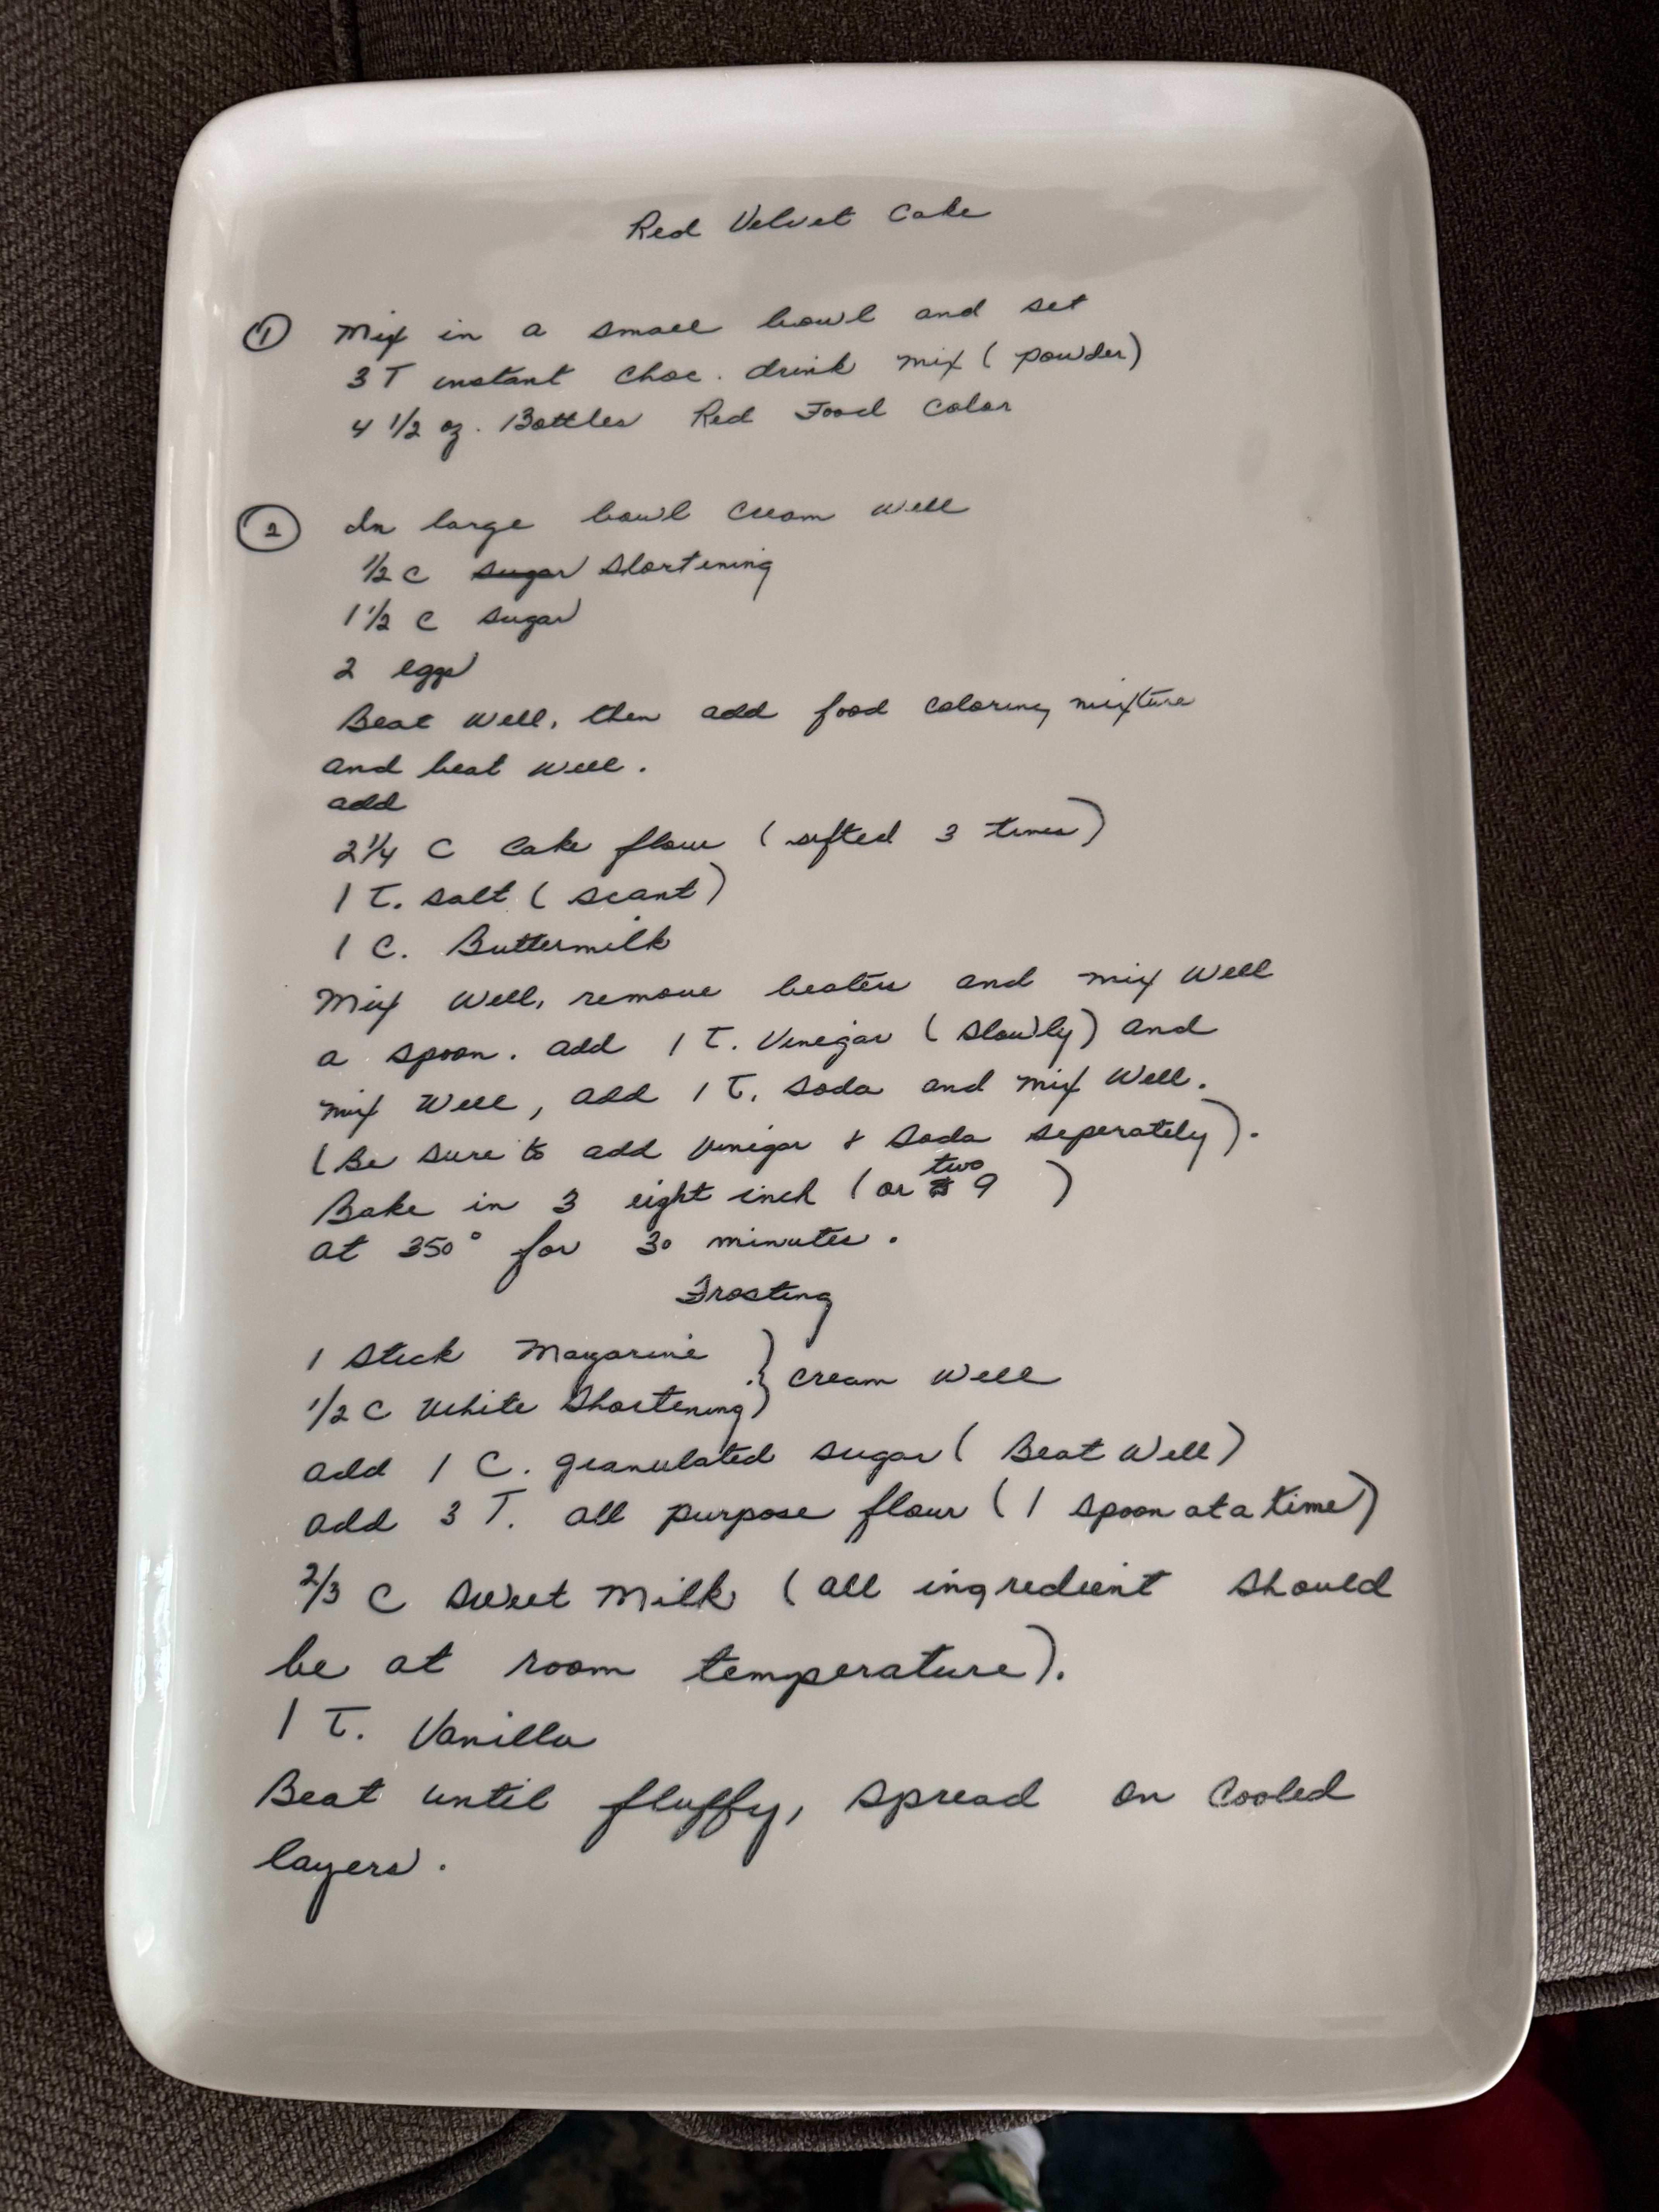 Red Velvet Cake
① Mix in a small bowl and set
3 T instant choc. drink mix (powder)
4 1/2 oz. Bottles Red Food Color
② In large bowl cream well
1/2 C sugar shortening
1 1/2 C sugar
2 eggs
Beat well, then add food coloring mixture
and beat well.
add
2 1/4 C Cake flour (sifted 3 times)
1 t. salt (scant)
1 C. Buttermilk
Mix well, remove beaters and mix well
a spoon. add 1 t. Vinegar (slowly) and
mix well, add 1 t. soda and mix well.
(Be sure to add vinegar & soda seperately).
Bake in 3 eight inch (or two 9 )
at 350° for 30 minutes.
Frosting
1 stick Magarine
1/2 C White Shortening } cream well
add 1 C. granulated sugar (Beat Well)
add 3 T. all purpose flour (1 spoon at a time)
2/3 C sweet milk (all ingredient should
be at room temperature).
1 t. Vanilla
Beat until fluffy, spread on cooled
layers.